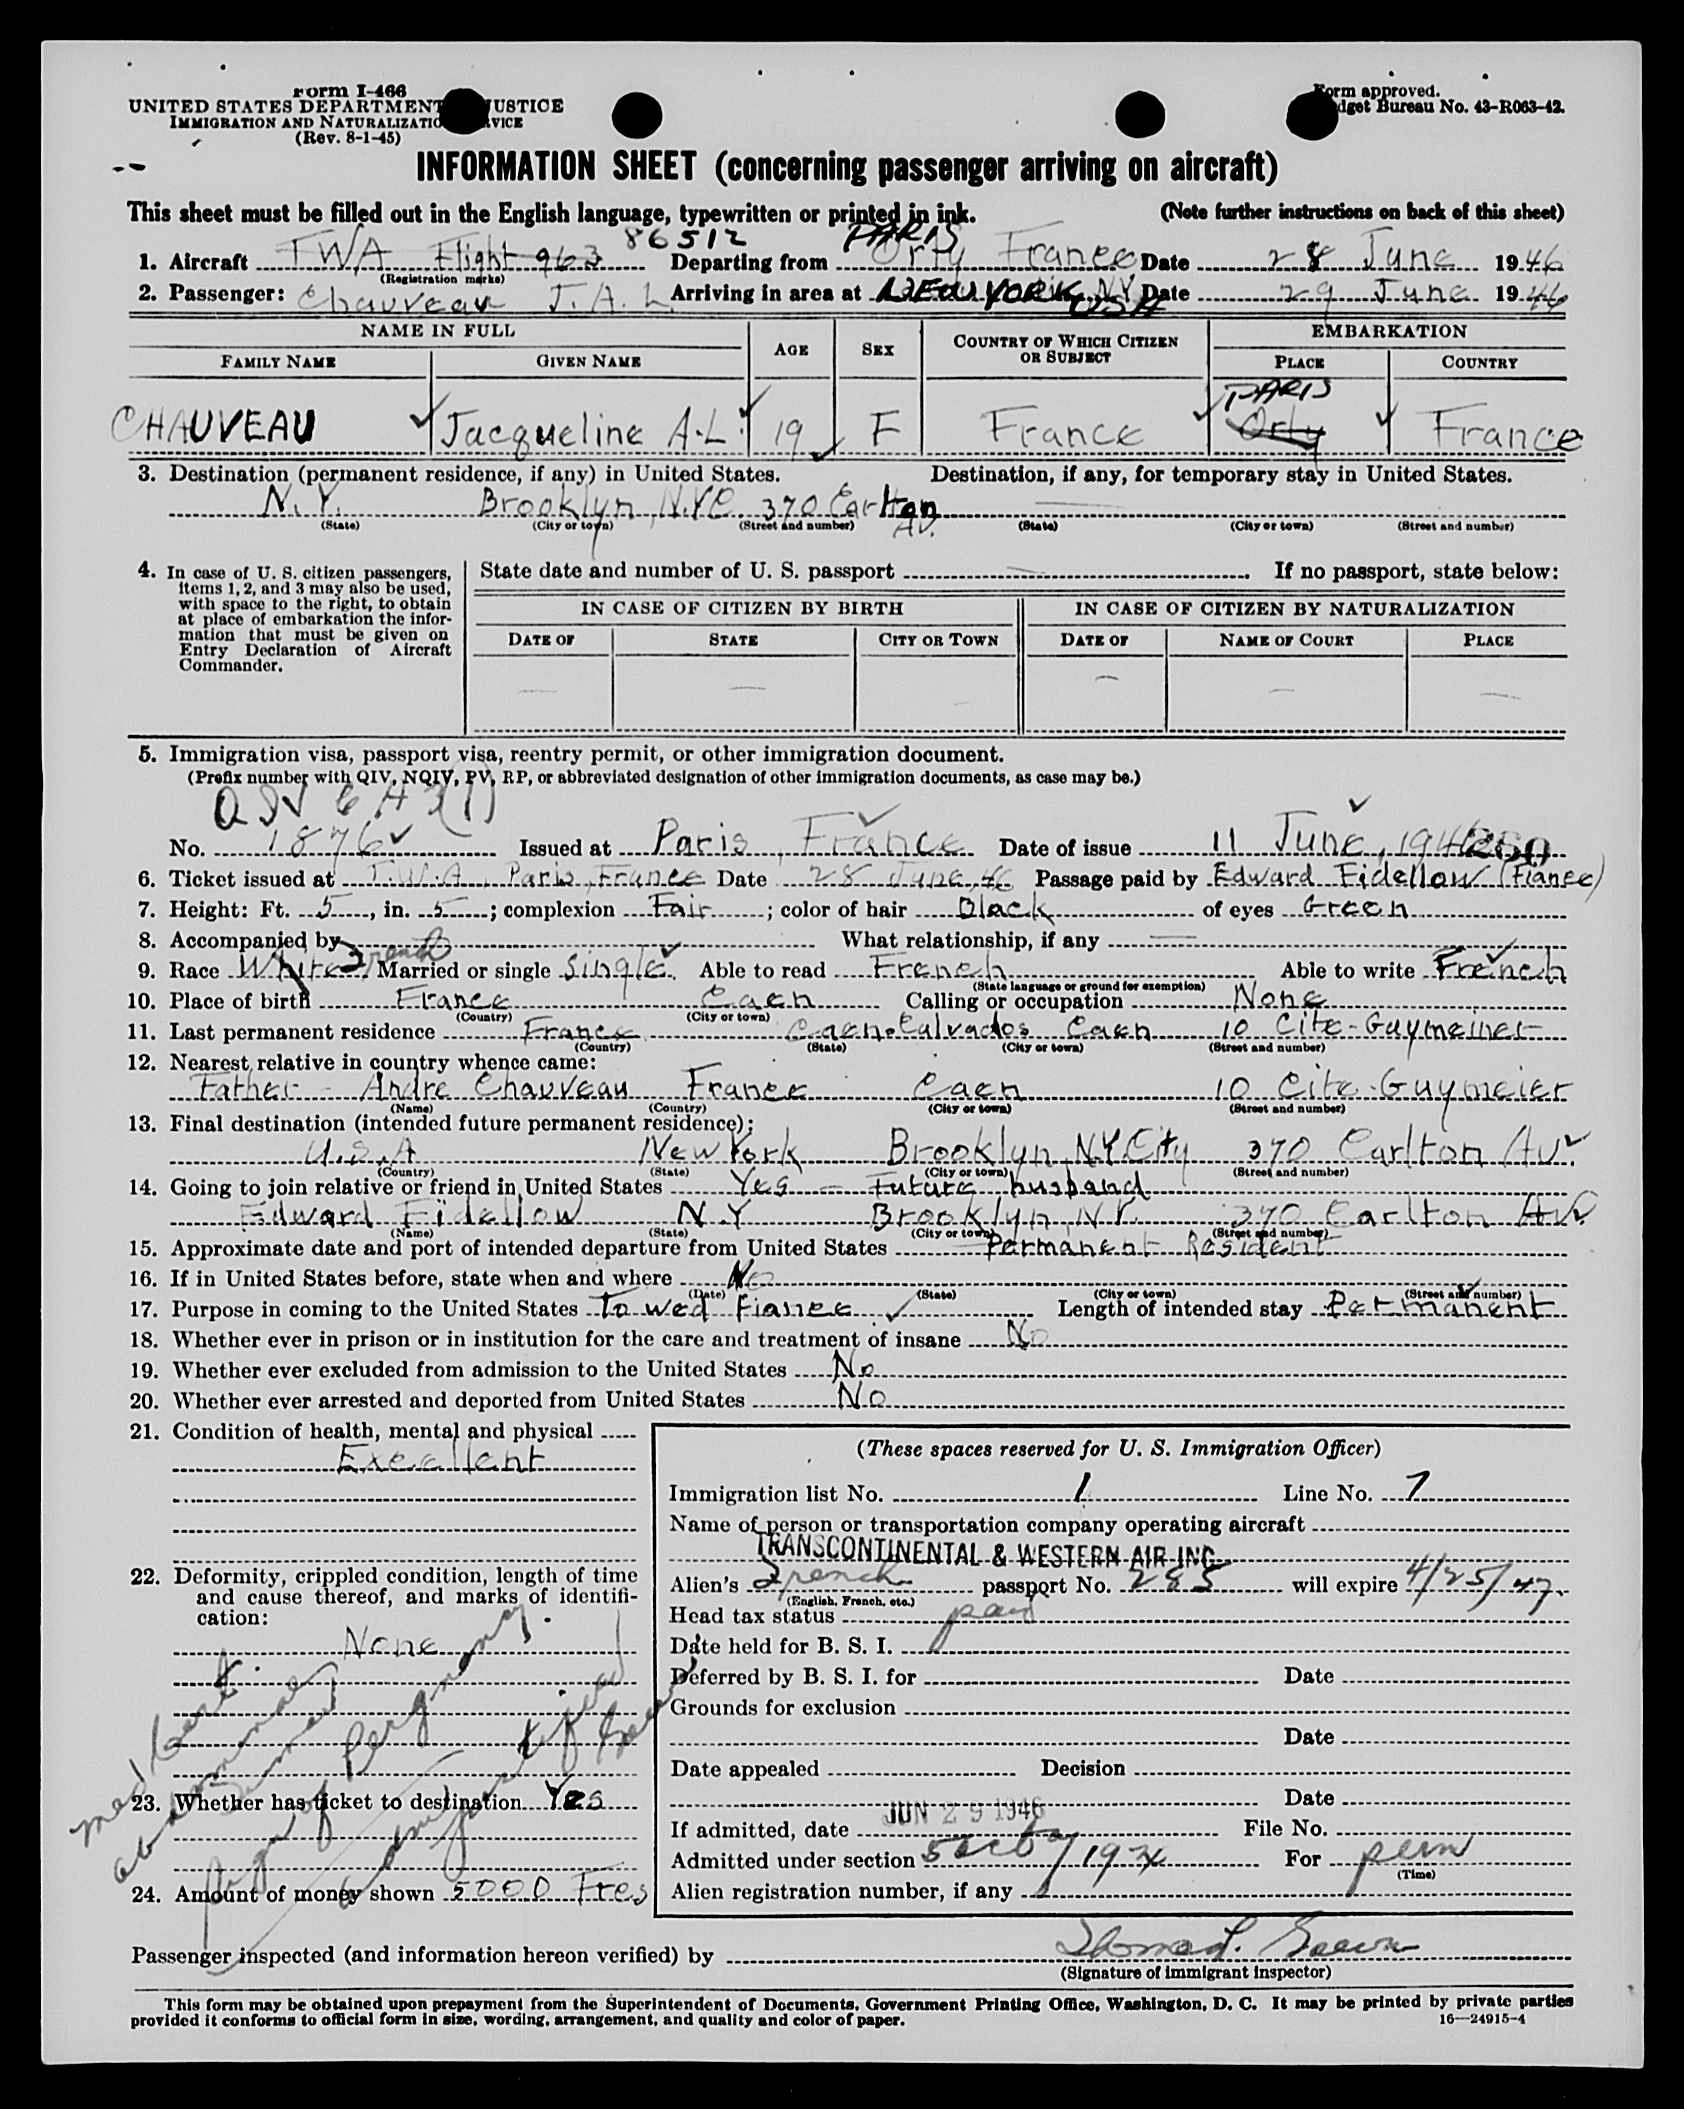 Form I-466
UNITED STATES DEPARTMENT JUSTICE
IMMIGRATION AND NATURALIZATIO VICE
(Rev. 8-1-45)
Form approved.
dget Bureau No. 43-R063-42.
INFORMATION SHEET (concerning passenger arriving on aircraft)
This sheet must be filled out in the English language, typewritten or printed in ink. (Note further instructions on back of this sheet)
86512 PARIS
1. Aircraft TWA Flight 963 Departing from Orly France Date 28 June 1946
(Registration marks)
2. Passenger: Chauveau J. A. L. Arriving in area at NEW YORK N.Y. USA Date 29 June 1946
NAME IN FULL AGE SEX COUNTRY OF WHICH CITIZEN OR SUBJECT EMBARKATION
FAMILY NAME GIVEN NAME PLACE COUNTRY
PARIS
CHAUVEAU Jacqueline A.L. 19 F France Orly France
3. Destination (permanent residence, if any) in United States. Destination, if any, for temporary stay in United States.
N.Y. Brooklyn, N.Y.C 370 Carlton Av.
(State) (City or town) (Street and number) (State) (City or town) (Street and number)
4. In case of U. S. citizen passengers, items 1, 2, and 3 may also be used, with space to the right, to obtain at place of embarkation the information that must be given on Entry Declaration of Aircraft Commander.
State date and number of U. S. passport . If no passport, state below:
IN CASE OF CITIZEN BY BIRTH IN CASE OF CITIZEN BY NATURALIZATION
DATE OF STATE CITY OR TOWN DATE OF NAME OF COURT PLACE
5. Immigration visa, passport visa, reentry permit, or other immigration document.
(Prefix number with QIV, NQIV, PV, RP, or abbreviated designation of other immigration documents, as case may be.)
No. 1876 Issued at Paris, France Date of issue 11 June, 1946
6. Ticket issued at T.W.A, Paris, France Date 28 June, 46 Passage paid by Edward Fidellow (Fiancé)
7. Height: Ft. 5, in. 5; complexion Fair; color of hair Black of eyes Green
8. Accompanied by What relationship, if any
9. Race White French Married or single Single Able to read French Able to write French
(State language or ground for exemption)
10. Place of birth France Caen Calling or occupation None
(Country) (City or town)
11. Last permanent residence France Caen-Calvados Caen 10 Cite-Guymeiner
(Country) (State) (City or town) (Street and number)
12. Nearest relative in country whence came:
Father - Andre Chauveau France Caen 10 Cite-Guymeier
(Name) (Country) (City or town) (Street and number)
13. Final destination (intended future permanent residence):
U.S.A New York Brooklyn, N.Y.City 370 Carlton Av.
(Country) (State) (City or town) (Street and number)
14. Going to join relative or friend in United States Yes - Future husband
Edward Fidellow N.Y Brooklyn, N.Y. 370 Carlton Av.
(Name) (State) (City or town) (Street and number)
15. Approximate date and port of intended departure from United States Permanent Resident
16. If in United States before, state when and where No
(Date) (State) (City or town) (Street and number)
17. Purpose in coming to the United States To wed Fiancee Length of intended stay Permanent
18. Whether ever in prison or in institution for the care and treatment of insane No
19. Whether ever excluded from admission to the United States No
20. Whether ever arrested and deported from United States No
21. Condition of health, mental and physical
Excellent
22. Deformity, crippled condition, length of time and cause thereof, and marks of identification:
None
med cert.
abdominal
sign of pregnancy.
23. Whether has ticket to destination Yes
24. Amount of money shown 5000 Frcs
(These spaces reserved for U. S. Immigration Officer)
Immigration list No. 1 Line No. 7
Name of person or transportation company operating aircraft
TRANSCONTINENTAL & WESTERN AIR INC
Alien's French passport No. 285 will expire 4/25/47.
(English, French, etc.)
Head tax status paid
Date held for B. S. I.
Deferred by B. S. I. for Date
Grounds for exclusion
Date
Date appealed Decision
Date
If admitted, date JUN 29 1946 File No.
Admitted under section 5 of 1924 For perm
(Time)
Alien registration number, if any
Passenger inspected (and information hereon verified) by
(Signature of immigrant inspector)
This form may be obtained upon prepayment from the Superintendent of Documents, Government Printing Office, Washington, D. C. It may be printed by private parties
provided it conforms to official form in size, wording, arrangement, and quality and color of paper. 16—24915-4